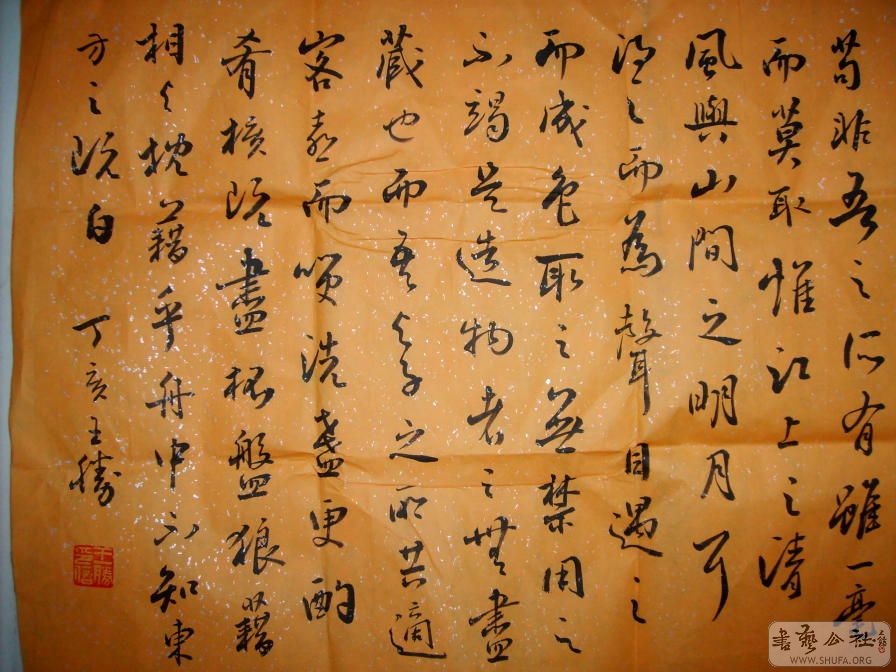 苟非吾之所有雖一毫
而莫取惟江上之清
風與山間之明月耳
得之而為聲目遇之
而成色取之無禁用之
不竭是造物者之無盡
藏也而吾与子之所共適
客喜而笑洗盞更酌
肴核既盡杯盤狼藉
相与枕藉乎舟中不知東
方之既白 丁亥王勝
王勝
書藝公社
WWW.SHUFA.ORG